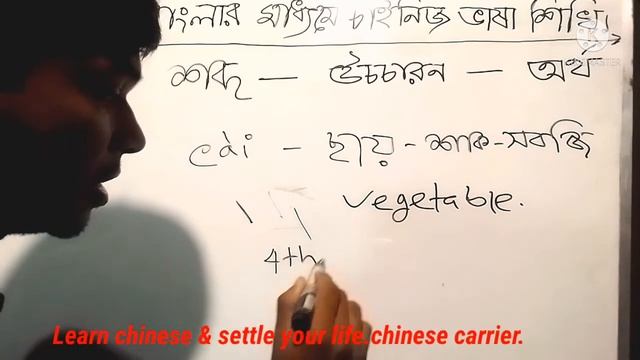 বাংলার মাধ্যমে চাইনিজ ভাষা শিখি
শব্দ – উচ্চারন – অর্থ
cài – ছায় - শাক-সবজি
vegetable.
4th
Learn chinese & settle your life.chinese carrier.